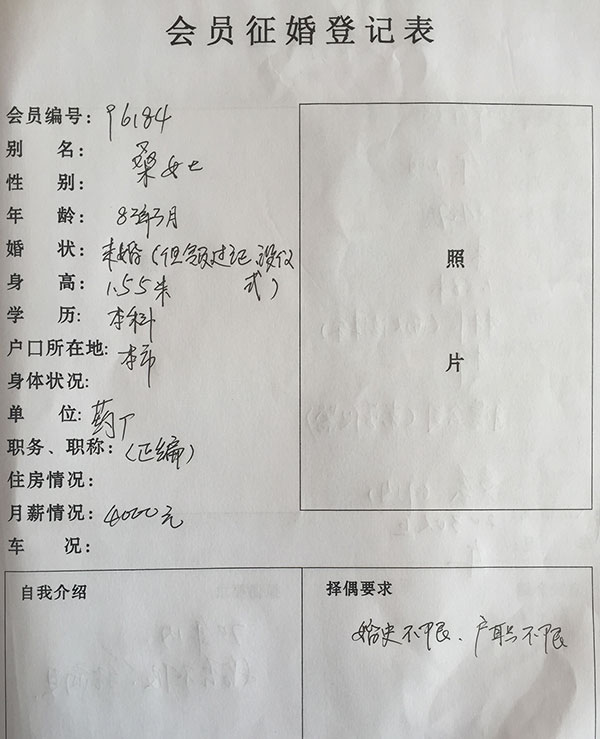 会员征婚登记表
会员编号：96184
别 名：桑女士
性 别：
年 龄：83年3月
婚 状：未婚（但领过记，没仪式）
身 高：1.55米
学 历：本科
户口所在地：本市
身体状况：
单 位：药厂
职务、职称：（正编）
住房情况：
月薪情况：4000元
车 况：
照
片
自我介绍
择偶要求
婚史不限、户职不限